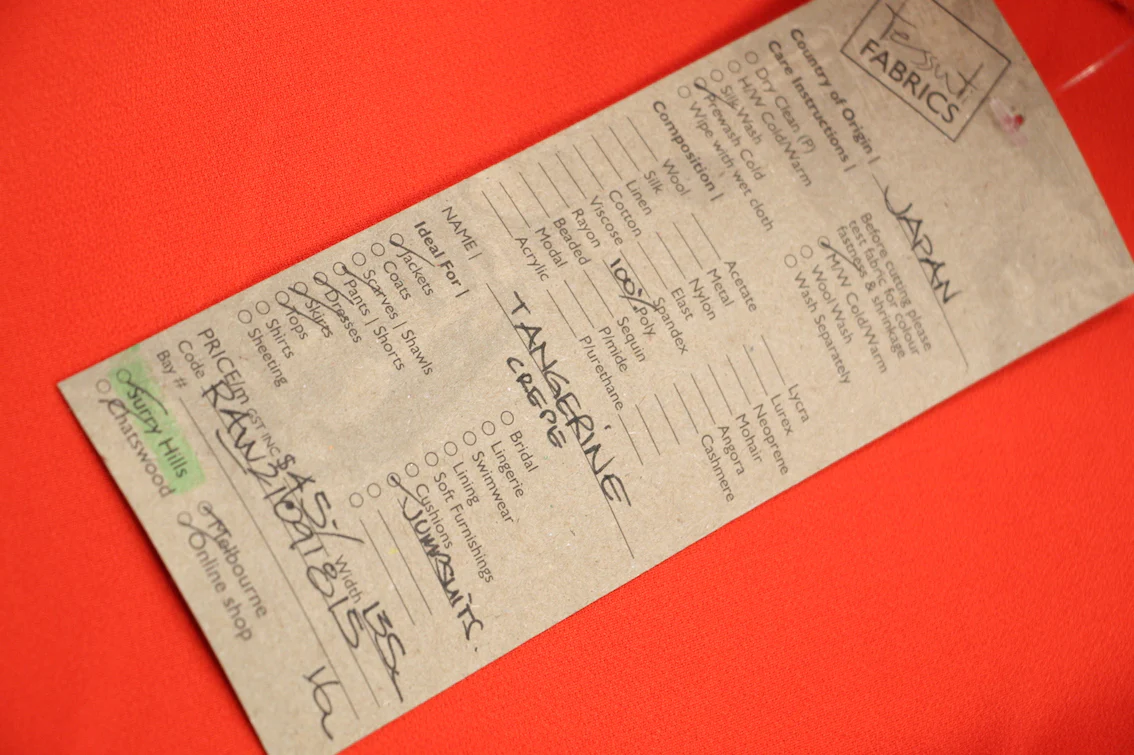 Tessuti
FABRICS
Country of Origin | JAPAN
Care Instructions |
Before cutting please
test fabric for colour
fastness & shrinkage
Dry Clean (P)
H/W Cold/Warm
Silk Wash
Prewash Cold
Wipe with wet cloth
M/W Cold/Warm
Wool Wash
Wash Separately
Composition |
Silk
Wool
Linen
Cotton
Viscose
Rayon
Beaded
Modal
Acrylic
Acetate
Metal
Nylon
Elast
Spandex
100% Poly
Sequin
P/mide
P/urethane
Lycra
Lurex
Neoprene
Mohair
Angora
Cashmere
NAME | TANGERINE
CREPE
Ideal For |
Jackets
Coats
Scarves | Shawls
Pants | Shorts
Dresses
Skirts
Tops
Shirts
Sheeting
Bridal
Lingerie
Swimwear
Lining
Soft Furnishings
Cushions
JUMPSUITS.
PRICE/m GST INC $45/ Width 135
Code RAW21091815
Bay #
Surry Hills
Chatswood
Melbourne
Online shop